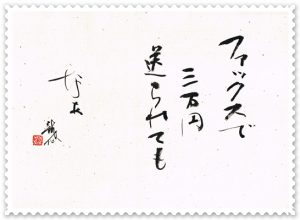 ファックスで
三万円
送られても
なあ